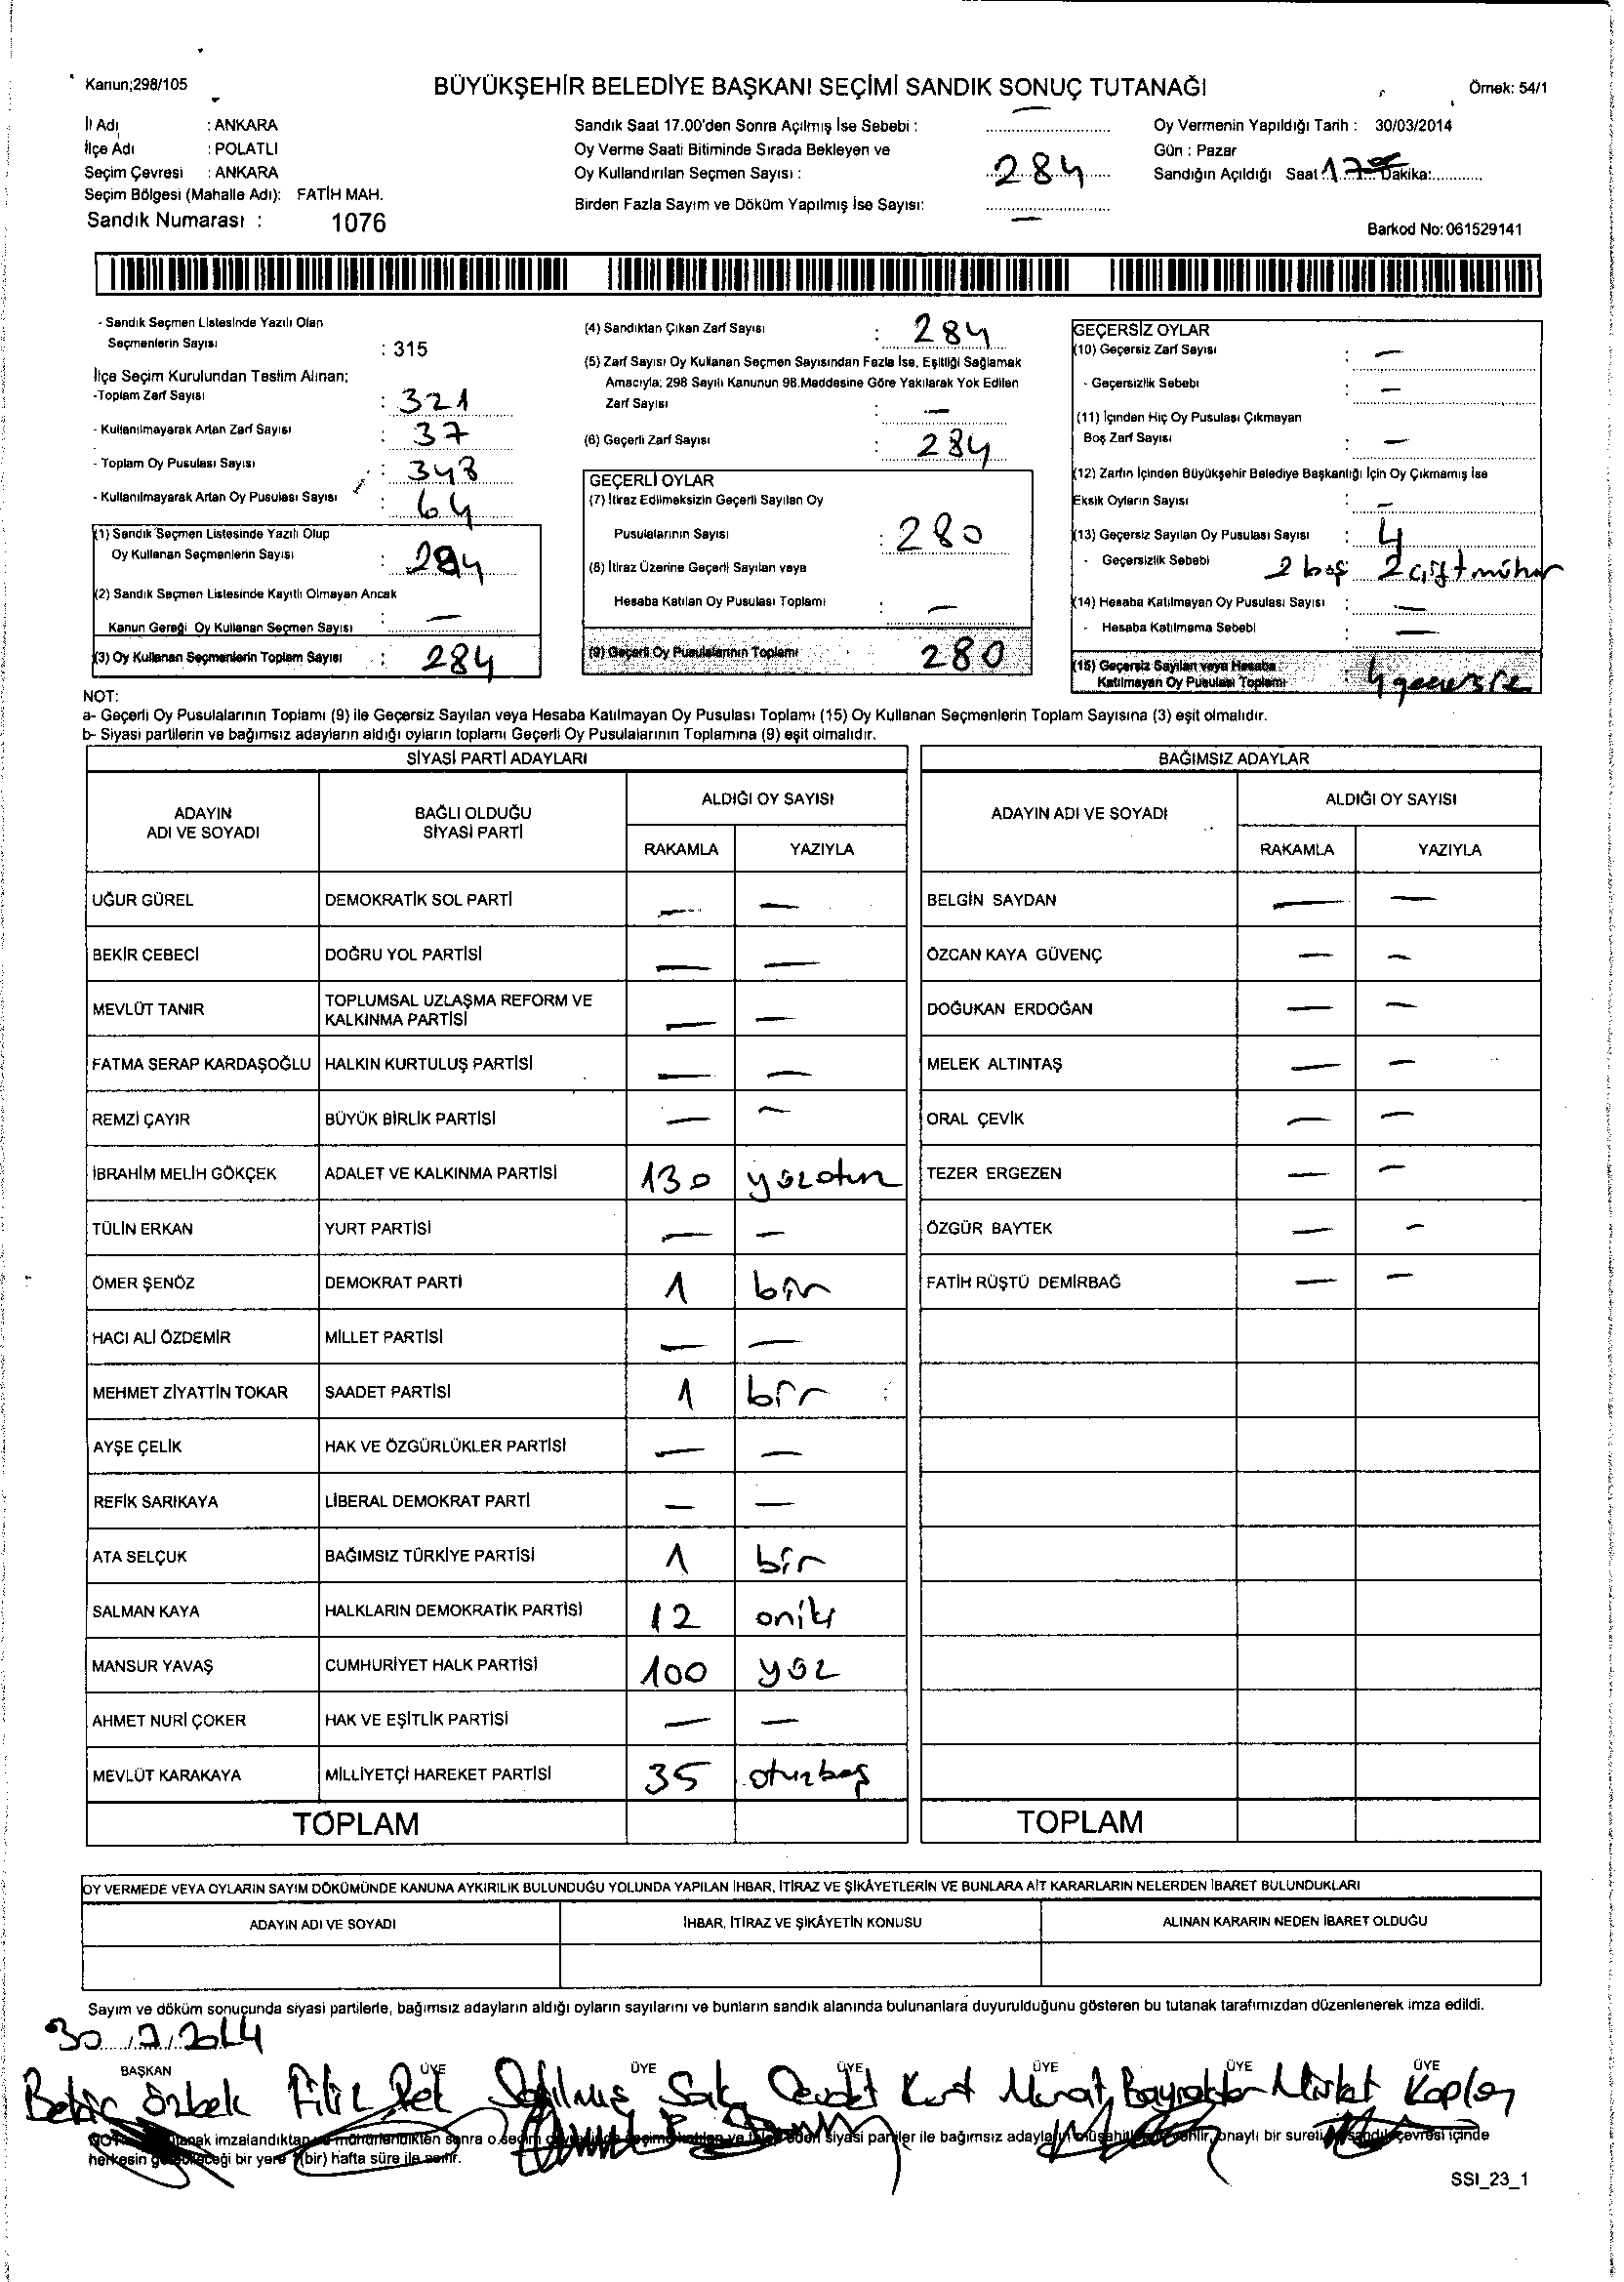 Kanun;298/105
BÜYÜKŞEHİR BELEDİYE BAŞKANI SEÇİMİ SANDIK SONUÇ TUTANAĞI
Örnek: 54/1
İl Adı : ANKARA
İlçe Adı : POLATLI
Seçim Çevresi : ANKARA
Seçim Bölgesi (Mahalle Adı): FATİH MAH.
Sandık Numarası : 1076
Sandık Saat 17.00'den Sonra Açılmış İse Sebebi : —
Oy Verme Saati Bitiminde Sırada Bekleyen ve
Oy Kullandırılan Seçmen Sayısı : 284
Birden Fazla Sayım ve Döküm Yapılmış İse Sayısı: —
Oy Vermenin Yapıldığı Tarih : 30/03/2014
Gün : Pazar
Sandığın Açıldığı Saat: 17 Dakika:
Barkod No: 061529141
- Sandık Seçmen Listesinde Yazılı Olan
Seçmenlerin Sayısı : 315
İlçe Seçim Kurulundan Teslim Alınan:
-Toplam Zarf Sayısı : 321
- Kullanılmayarak Artan Zarf Sayısı : 37
- Toplam Oy Pusulası Sayısı : 348
- Kullanılmayarak Artan Oy Pusulası Sayısı : 64
(1) Sandık Seçmen Listesinde Yazılı Olup
Oy Kullanan Seçmenlerin Sayısı : 284
(2) Sandık Seçmen Listesinde Kayıtlı Olmayan Ancak
Kanun Gereği Oy Kullanan Seçmen Sayısı : —
(3) Oy Kullanan Seçmenlerin Toplam Sayısı : 284
(4) Sandıktan Çıkan Zarf Sayısı : 284
(5) Zarf Sayısı Oy Kullanan Seçmen Sayısından Fazla İse, Eşitliği Sağlamak
Amacıyla; 298 Sayılı Kanunun 98.Maddesine Göre Yakılarak Yok Edilen
Zarf Sayısı : —
(6) Geçerli Zarf Sayısı : 284
GEÇERLİ OYLAR
(7) İtiraz Edilmeksizin Geçerli Sayılan Oy
Pusulalarının Sayısı : 280
(8) İtiraz Üzerine Geçerli Sayılan veya
Hesaba Katılan Oy Pusulası Toplamı : —
(9) Geçerli Oy Pusulalarının Toplamı 280
GEÇERSİZ OYLAR
(10) Geçersiz Zarf Sayısı : —
- Geçersizlik Sebebi : —
(11) İçinden Hiç Oy Pusulası Çıkmayan
Boş Zarf Sayısı : —
(12) Zarfın İçinden Büyükşehir Belediye Başkanlığı İçin Oy Çıkmamış İse
Eksik Oyların Sayısı : —
(13) Geçersiz Sayılan Oy Pusulası Sayısı : 4
- Geçersizlik Sebebi 2 boş 2 çift mühür
(14) Hesaba Katılmayan Oy Pusulası Sayısı : —
- Hesaba Katılmama Sebebi : —
(15) Geçersiz Sayılan veya Hesaba
Katılmayan Oy Pusulası Toplamı : 4 geçersiz
NOT:
a- Geçerli Oy Pusulalarının Toplamı (9) ile Geçersiz Sayılan veya Hesaba Katılmayan Oy Pusulası Toplamı (15) Oy Kullanan Seçmenlerin Toplam Sayısına (3) eşit olmalıdır.
b- Siyasi partilerin ve bağımsız adayların aldığı oyların toplamı Geçerli Oy Pusulalarının Toplamına (9) eşit olmalıdır.
SİYASİ PARTİ ADAYLARI
ADAYIN ADI VE SOYADI BAĞLI OLDUĞU SİYASİ PARTİ ALDIĞI OY SAYISI
RAKAMLA YAZIYLA
UĞUR GÜREL DEMOKRATİK SOL PARTİ — —
BEKİR CEBECİ DOĞRU YOL PARTİSİ — —
MEVLÜT TANIR TOPLUMSAL UZLAŞMA REFORM VE KALKINMA PARTİSİ — —
FATMA SERAP KARDAŞOĞLU HALKIN KURTULUŞ PARTİSİ — —
REMZİ ÇAYIR BÜYÜK BİRLİK PARTİSİ — —
İBRAHİM MELİH GÖKÇEK ADALET VE KALKINMA PARTİSİ 130 yüzotuz
TÜLİN ERKAN YURT PARTİSİ — —
ÖMER ŞENÖZ DEMOKRAT PARTİ 1 bir
HACI ALİ ÖZDEMİR MİLLET PARTİSİ — —
MEHMET ZİYATTİN TOKAR SAADET PARTİSİ 1 bir
AYŞE ÇELİK HAK VE ÖZGÜRLÜKLER PARTİSİ — —
REFİK SARIKAYA LİBERAL DEMOKRAT PARTİ — —
ATA SELÇUK BAĞIMSIZ TÜRKİYE PARTİSİ 1 bir
SALMAN KAYA HALKLARIN DEMOKRATİK PARTİSİ 12 oniki
MANSUR YAVAŞ CUMHURİYET HALK PARTİSİ 100 yüz
AHMET NURİ ÇOKER HAK VE EŞİTLİK PARTİSİ — —
MEVLÜT KARAKAYA MİLLİYETÇİ HAREKET PARTİSİ 35 otuzbeş
TOPLAM
BAĞIMSIZ ADAYLAR
ADAYIN ADI VE SOYADI ALDIĞI OY SAYISI
RAKAMLA YAZIYLA
BELGİN SAYDAN — —
ÖZCAN KAYA GÜVENÇ — —
DOĞUKAN ERDOĞAN — —
MELEK ALTINTAŞ — —
ORAL ÇEVİK — —
TEZER ERGEZEN — —
ÖZGÜR BAYTEK — —
FATİH RÜŞTÜ DEMİRBAĞ — —
TOPLAM
OY VERMEDE VEYA OYLARIN SAYIM DÖKÜMÜNDE KANUNA AYKIRILIK BULUNDUĞU YOLUNDA YAPILAN İHBAR, İTİRAZ VE ŞİKÂYETLERİN VE BUNLARA AİT KARARLARIN NELERDEN İBARET BULUNDUKLARI
ADAYIN ADI VE SOYADI İHBAR, İTİRAZ VE ŞİKÂYETİN KONUSU ALINAN KARARIN NEDEN İBARET OLDUĞU
Sayım ve döküm sonucunda siyasi partilerle, bağımsız adayların aldığı oyların sayılarını ve bunların sandık alanında bulunanlara duyurulduğunu gösteren bu tutanak tarafımızdan düzenlenerek imza edildi.
BAŞKAN ÜYE ÜYE ÜYE ÜYE ÜYE ÜYE
Özbek Cevdet Kurt Murat Bayraktar Kaplan
imzalandıktan sonra siyasi partiler ile bağımsız onaylı bir sureti çevresi içinde
herkesin bir yere (bir) hafta süre ile
SSI_23_1